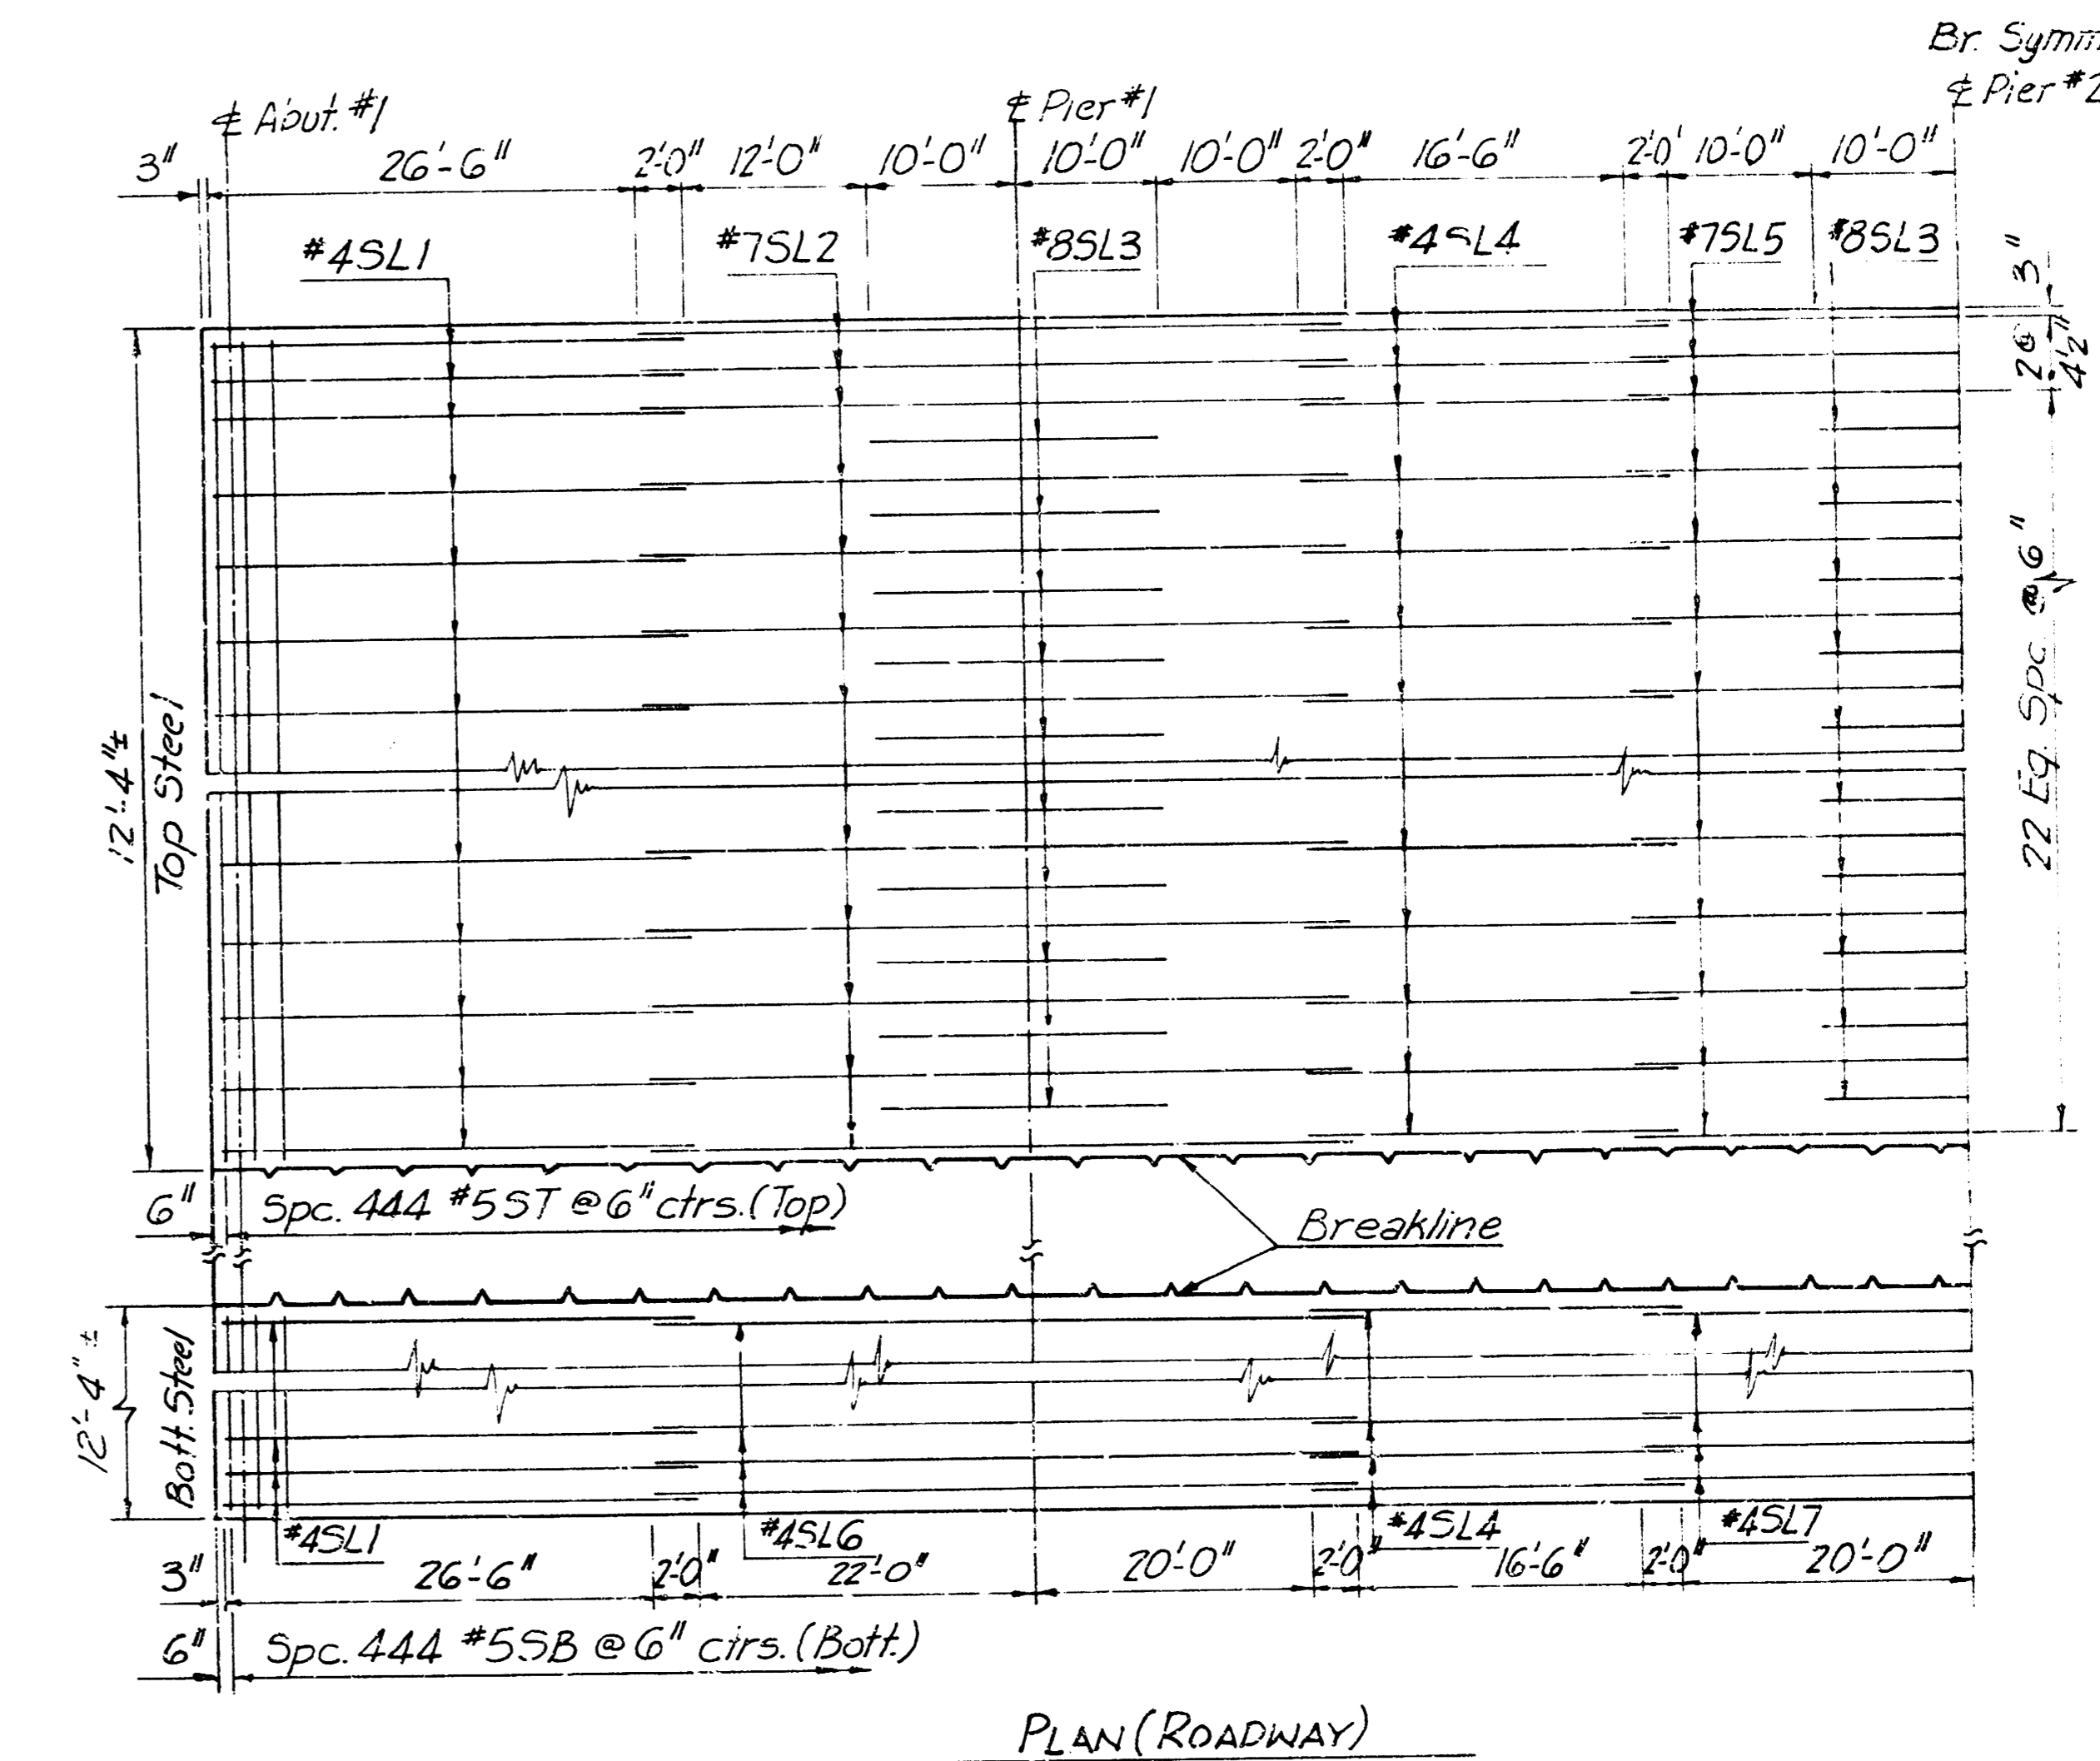 Br. Symm
℄ Abut. #1
℄ Pier #1
℄ Pier #2
3" 26'-6" 2'-0" 12'-0" 10'-0" 10'-0" 10'-0" 2'-0" 16'-6" 2'-0' 10'-0" 10'-0"
#4SL1 #7SL2 #8SL3 #4SL4 #7SL5 #8SL3
3"
2@
4'2"
22 Eq. Spc. @ 6"
12'-4"±
Top Steel
6" Spc. 444 #5ST @ 6" ctrs. (Top)
Breakline
12'-4"±
Bott. Steel
#4SL1 #4SL6 #4SL4 #4SL7
3" 26'-6" 2'-0" 22'-0" 20'-0" 2'-0" 16'-6" 2'-0" 20'-0"
6" Spc. 444 #5SB @ 6" ctrs. (Bott.)
PLAN (ROADWAY)